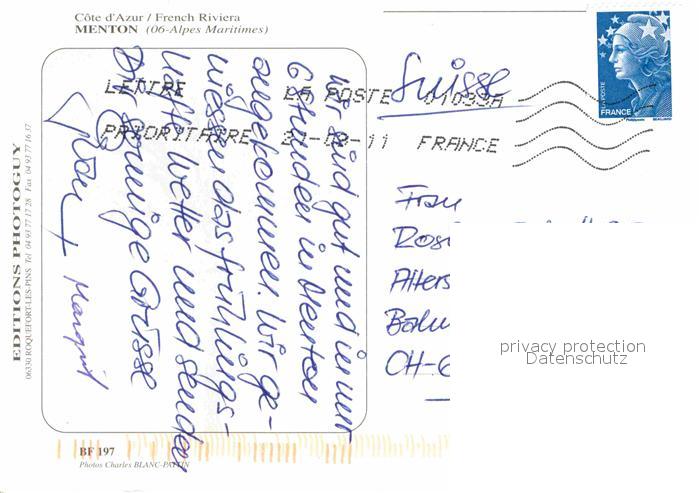 Côte d'Azur / French Riviera
MENTON (06-Alpes Maritimes)
LETTRE LA POSTE 01039A
PRIORITAIRE 21-03-11 FRANCE
LA POSTE
FRANCE
Suisse
Frau
CH-6
privacy protection
Datenschutz
Wir sind gut und
6 Stunden in Menton
angekommen. Wir ge-
niessen das frühlings-
hafte Wetter und senden
Dir sonnige Grüsse
Margrit
EDITIONS PHOTOGUY
06330 ROQUEFORT-LES-PINS Tel 04 93 77 17 28 Fax 04 93 77 16 37
BF 197
Photos Charles BLANC-PATTIN